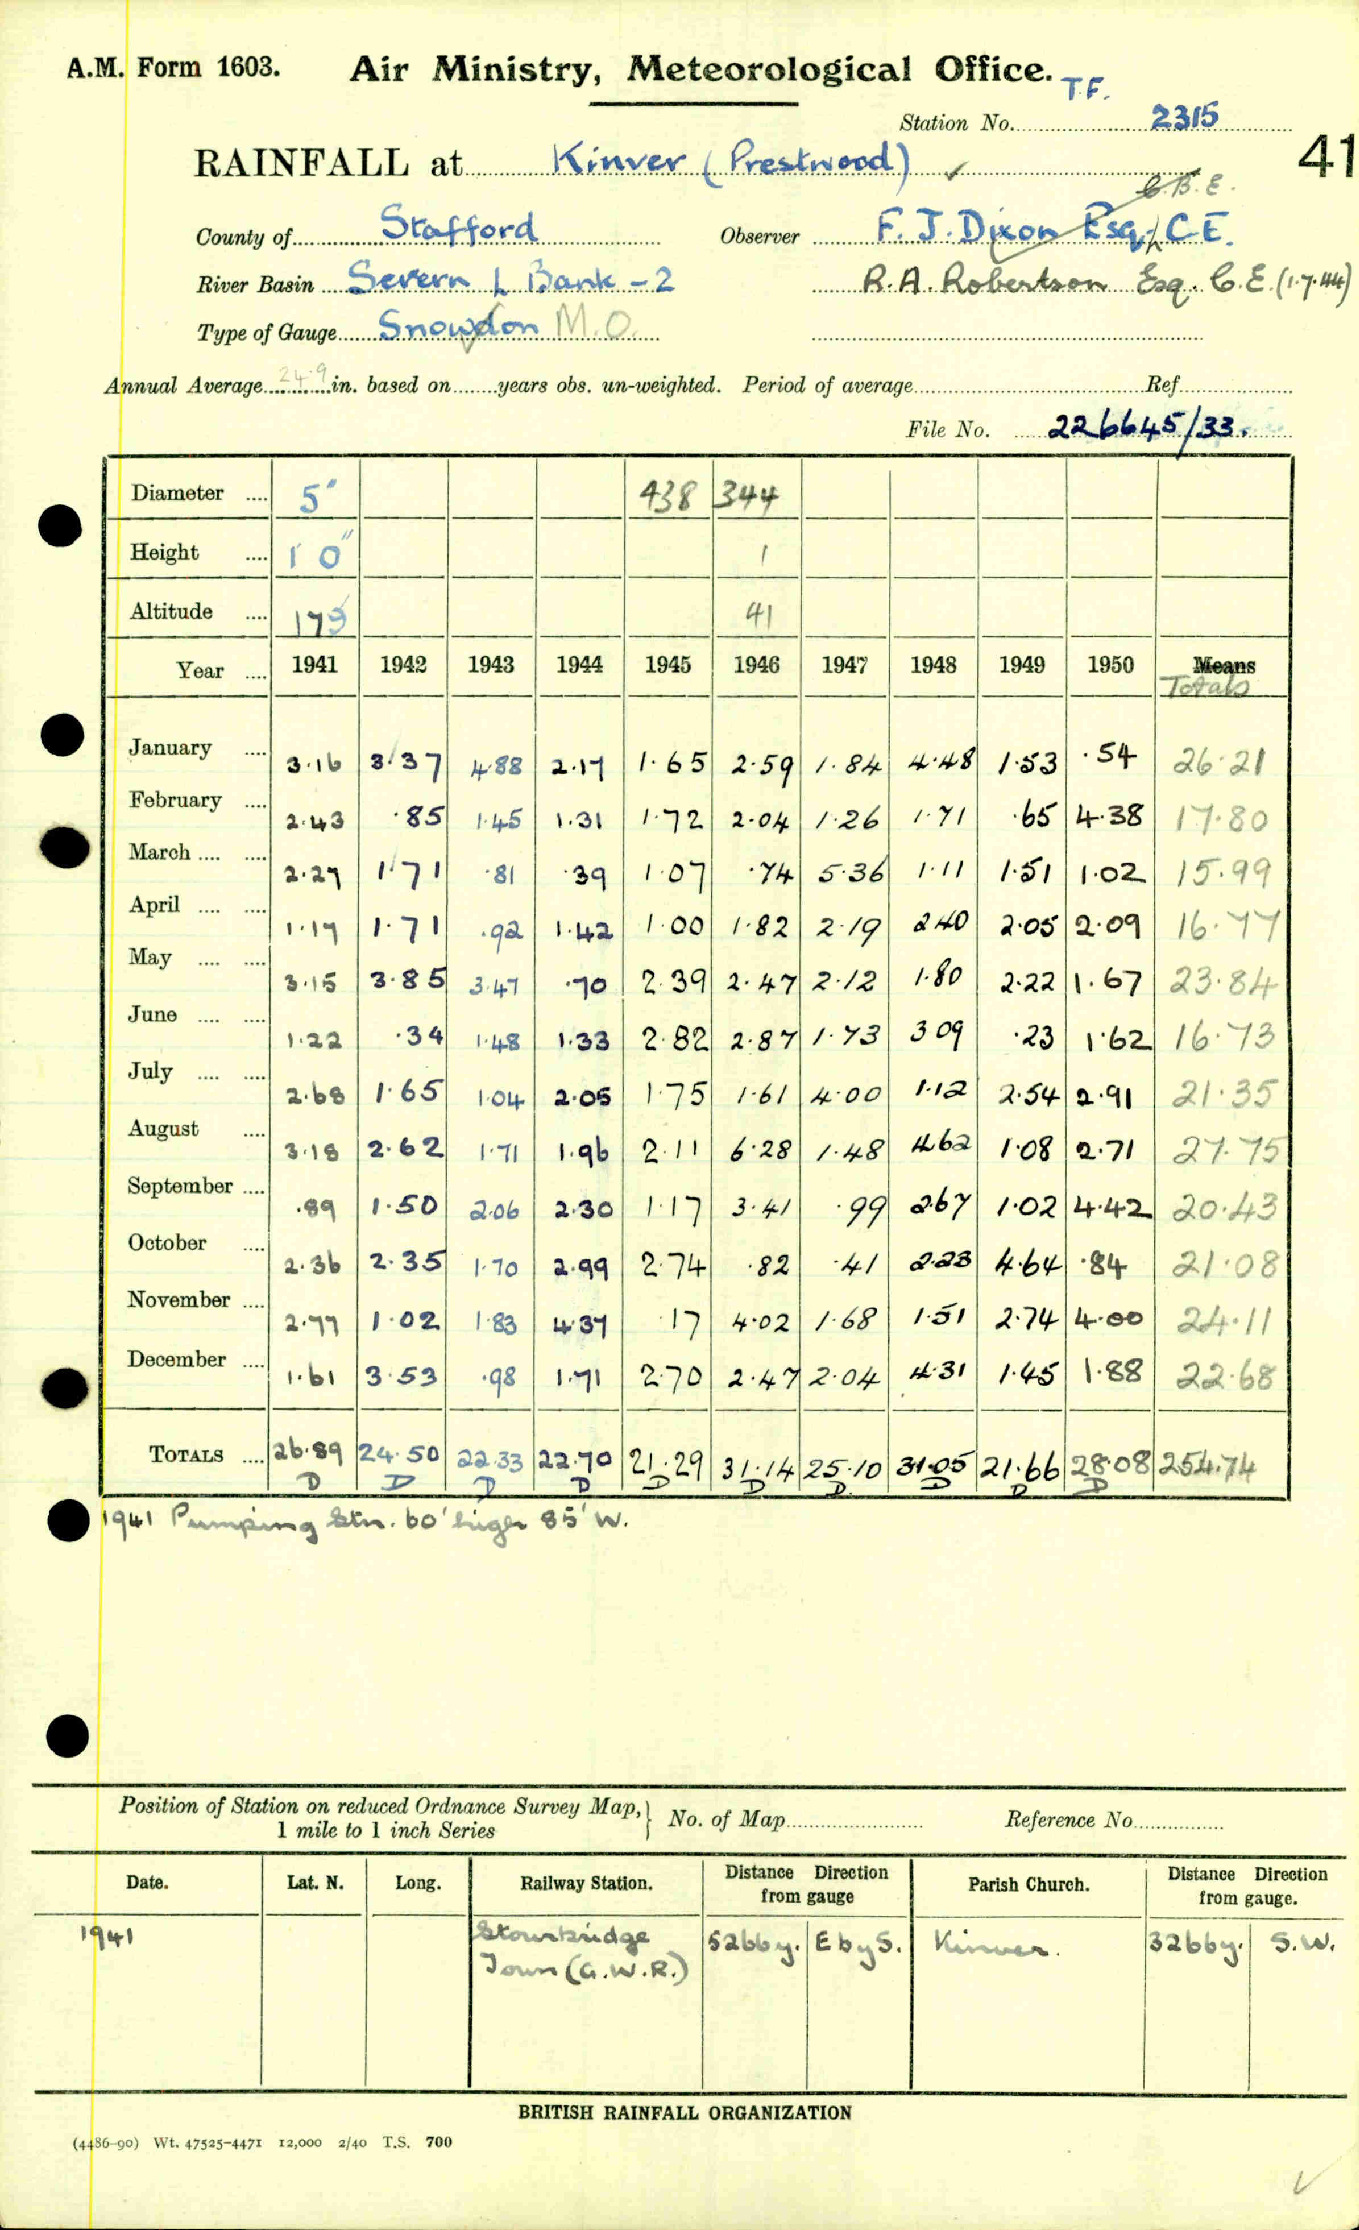 A.M. Form 1603. Air Ministry, Meteorological Office.
T.F.
Station No. 2315
RAINFALL at Kinver (Prestwood) ✓ 41
C.B.E.
County of Stafford Observer F. J. Dixon Esq, C.E.
River Basin Severn L Bank - 2 R.A. Robertson Esq. C.E. (1.7.44)
Type of Gauge Snowdon M.O.
Annual Average 24.9 in. based on years obs. un-weighted. Period of average Ref.
File No. 226645/33.
Diameter 5" 438 344
Height 1' 0" 1
Altitude 179 41
Year 1941 1942 1943 1944 1945 1946 1947 1948 1949 1950 Means
Totals
January 3.16 3.37 4.88 2.17 1.65 2.59 1.84 4.48 1.53 .54 26.21
February 2.43 .85 1.45 1.31 1.72 2.04 1.26 1.71 .65 4.38 17.80
March 2.27 1.71 .81 .39 1.07 .74 5.36 1.11 1.51 1.02 15.99
April 1.17 1.71 .92 1.42 1.00 1.82 2.19 2.40 2.05 2.09 16.77
May 3.15 3.85 3.47 .70 2.39 2.47 2.12 1.80 2.22 1.67 23.84
June 1.22 .34 1.48 1.33 2.82 2.87 1.73 3.09 .23 1.62 16.73
July 2.68 1.65 1.04 2.05 1.75 1.61 4.00 1.12 2.54 2.91 21.35
August 3.18 2.62 1.71 1.96 2.11 6.28 1.48 4.62 1.08 2.71 27.75
September .89 1.50 2.06 2.30 1.17 3.41 .99 2.67 1.02 4.42 20.43
October 2.36 2.35 1.70 2.99 2.74 .82 .41 2.23 4.64 .84 21.08
November 2.77 1.02 1.83 4.37 .17 4.02 1.68 1.51 2.74 4.00 24.11
December 1.61 3.53 .98 1.71 2.70 2.47 2.04 4.31 1.45 1.88 22.68
TOTALS 26.89 24.50 22.33 22.70 21.29 31.14 25.10 31.05 21.66 28.08 254.74
D D D D D D D D D D
1941 Pumping Stn. 60' high 85' W.
Position of Station on reduced Ordnance Survey Map, 1 mile to 1 inch Series } No. of Map Reference No.
Date. Lat. N. Long. Railway Station. Distance Direction from gauge Parish Church. Distance Direction from gauge.
1941 Stourbridge Town (G.W.R.) 5266y. E by S. Kinver. 3266y. S.W.
BRITISH RAINFALL ORGANIZATION
(4486-90) Wt. 47525-4471 12,000 2/40 T.S. 700